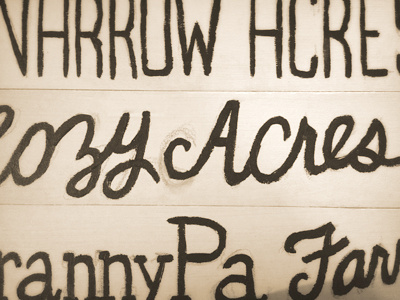 NARROW ACRES
Cozy Acres
rannyPa Far